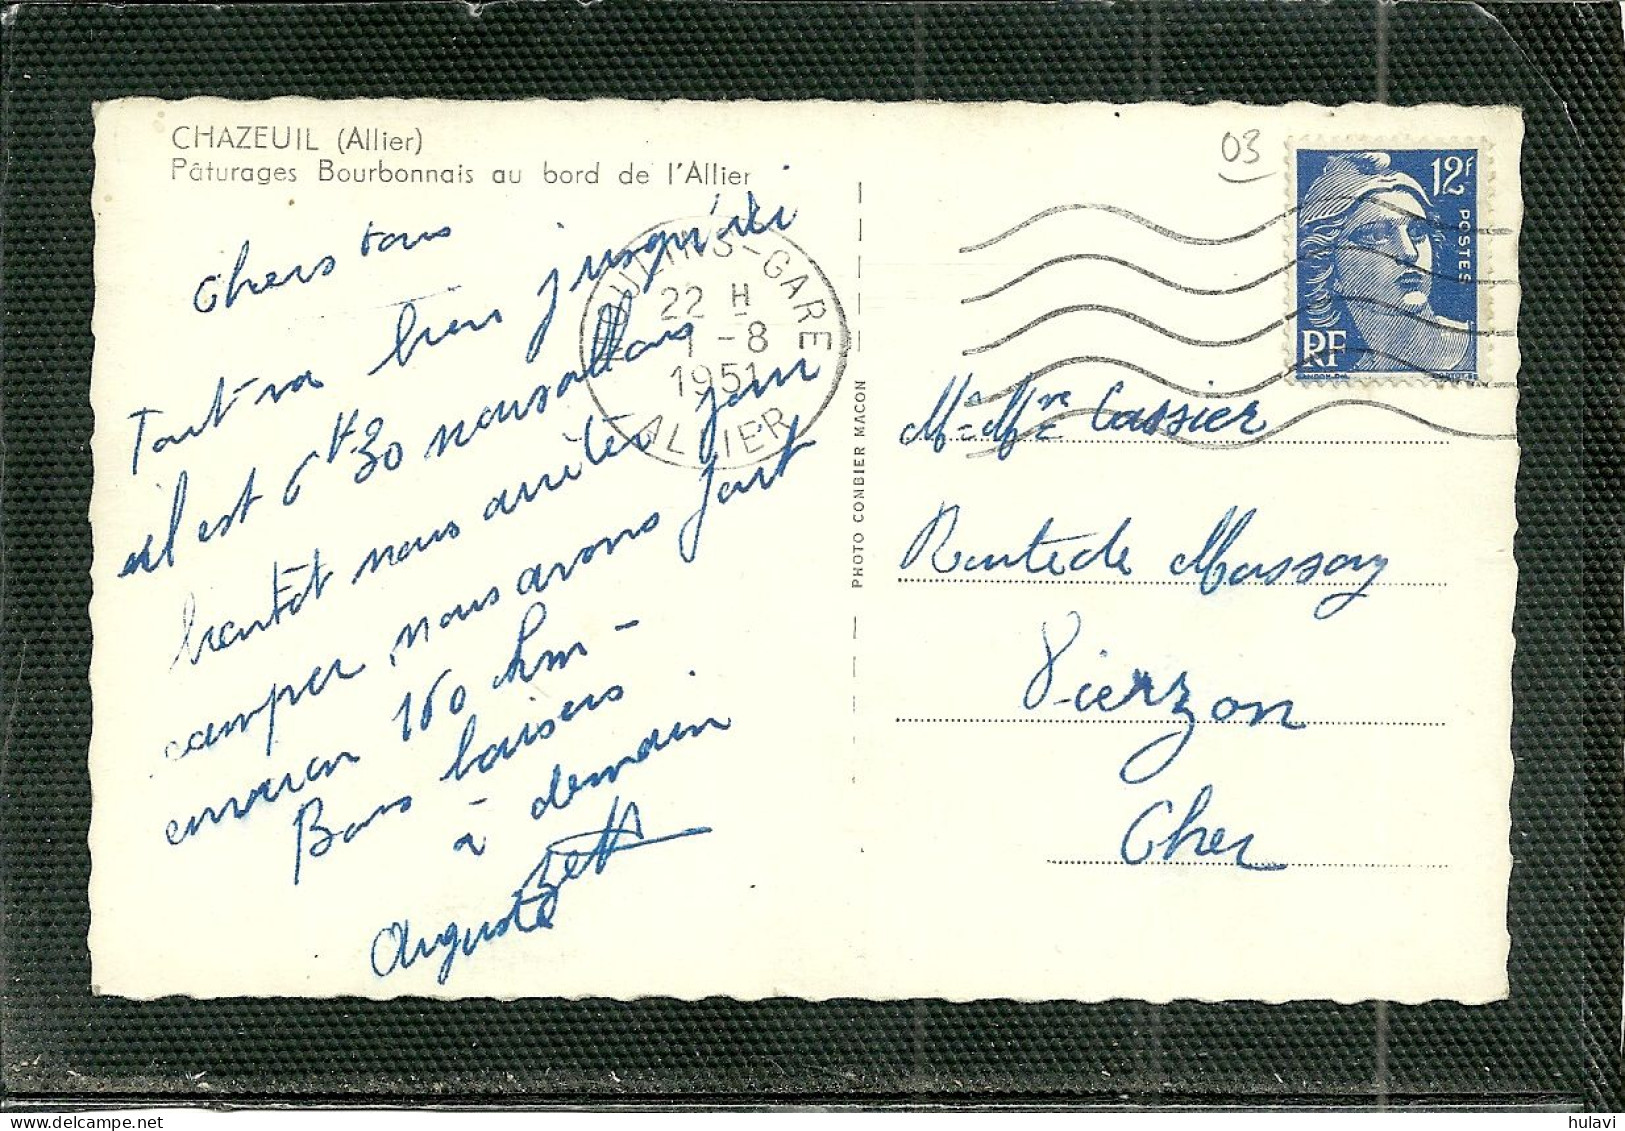 CHAZEUIL (Allier)
Pâturages Bourbonnais au bord de l'Allier
chers tous
Tout va bien jusqu'ici
il est 6 H 30 nous allons
bientôt nous arrêter pour
camper, nous avons fait
environ 160 km -
Bons baisers
à demain
Auguste
MOULINS-GARE
22 H
1 - 8
1951
ALLIER
PHOTO CONBIER MACON
03
12f
POSTES
RF
Mr & Mme Cassier
Route de Massay
Vierzon
Cher
hulavi
www.delcampe.net